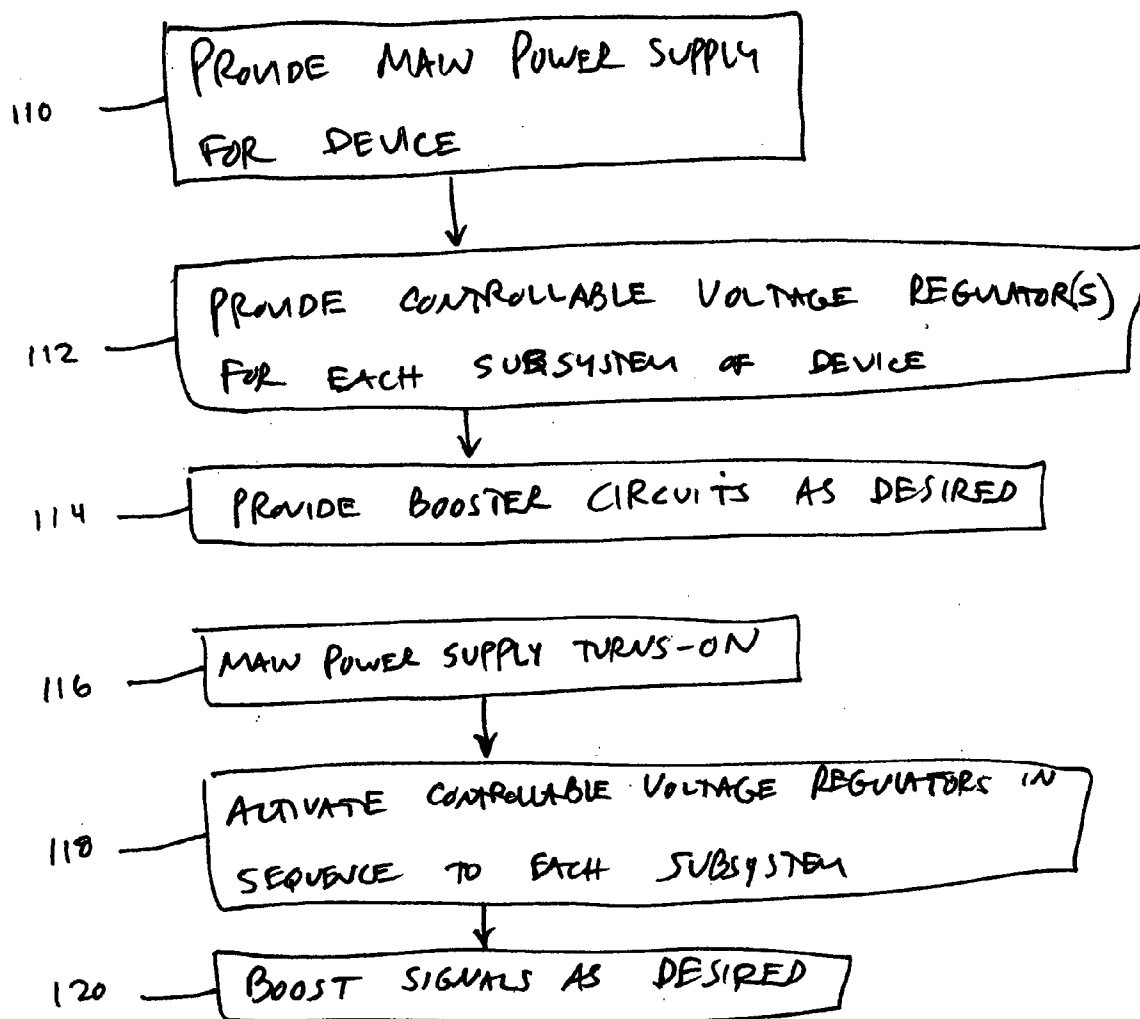 110
PROVIDE MAIN POWER SUPPLY
FOR DEVICE
112
PROVIDE CONTROLLABLE VOLTAGE REGULATOR(S)
FOR EACH SUBSYSTEM OF DEVICE
114
PROVIDE BOOSTER CIRCUITS AS DESIRED
116
MAIN POWER SUPPLY TURNS-ON
118
ACTIVATE CONTROLLABLE VOLTAGE REGULATORS IN
SEQUENCE TO EACH SUBSYSTEM
120
BOOST SIGNALS AS DESIRED